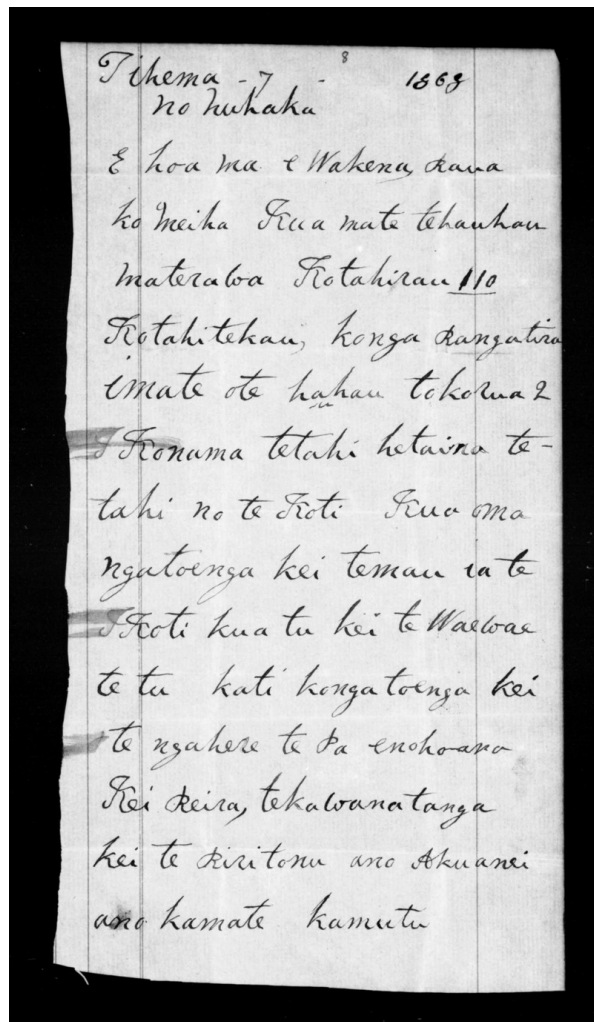 8
Tihema - 7 - 1868
no Nuhaka
E hoa ma e Wakena, Raua
ko Meiha Kua mate tehauhau
materawa Kotahirau 110
Kotahitekau, konga Rangatira
imate ote hauhau tokorua 2
Konama tetahi hetaina te-
tahi no te Koti Kua oma
ngatoenga kei temau ia te
Koti kua tu kei te Waewae
te tu kati kongatoenga kei
te ngahere te Pa enohoana
Kei Reira, tekawanatanga
kei te Riritonu ano Akuanei
ano kamate kamutu